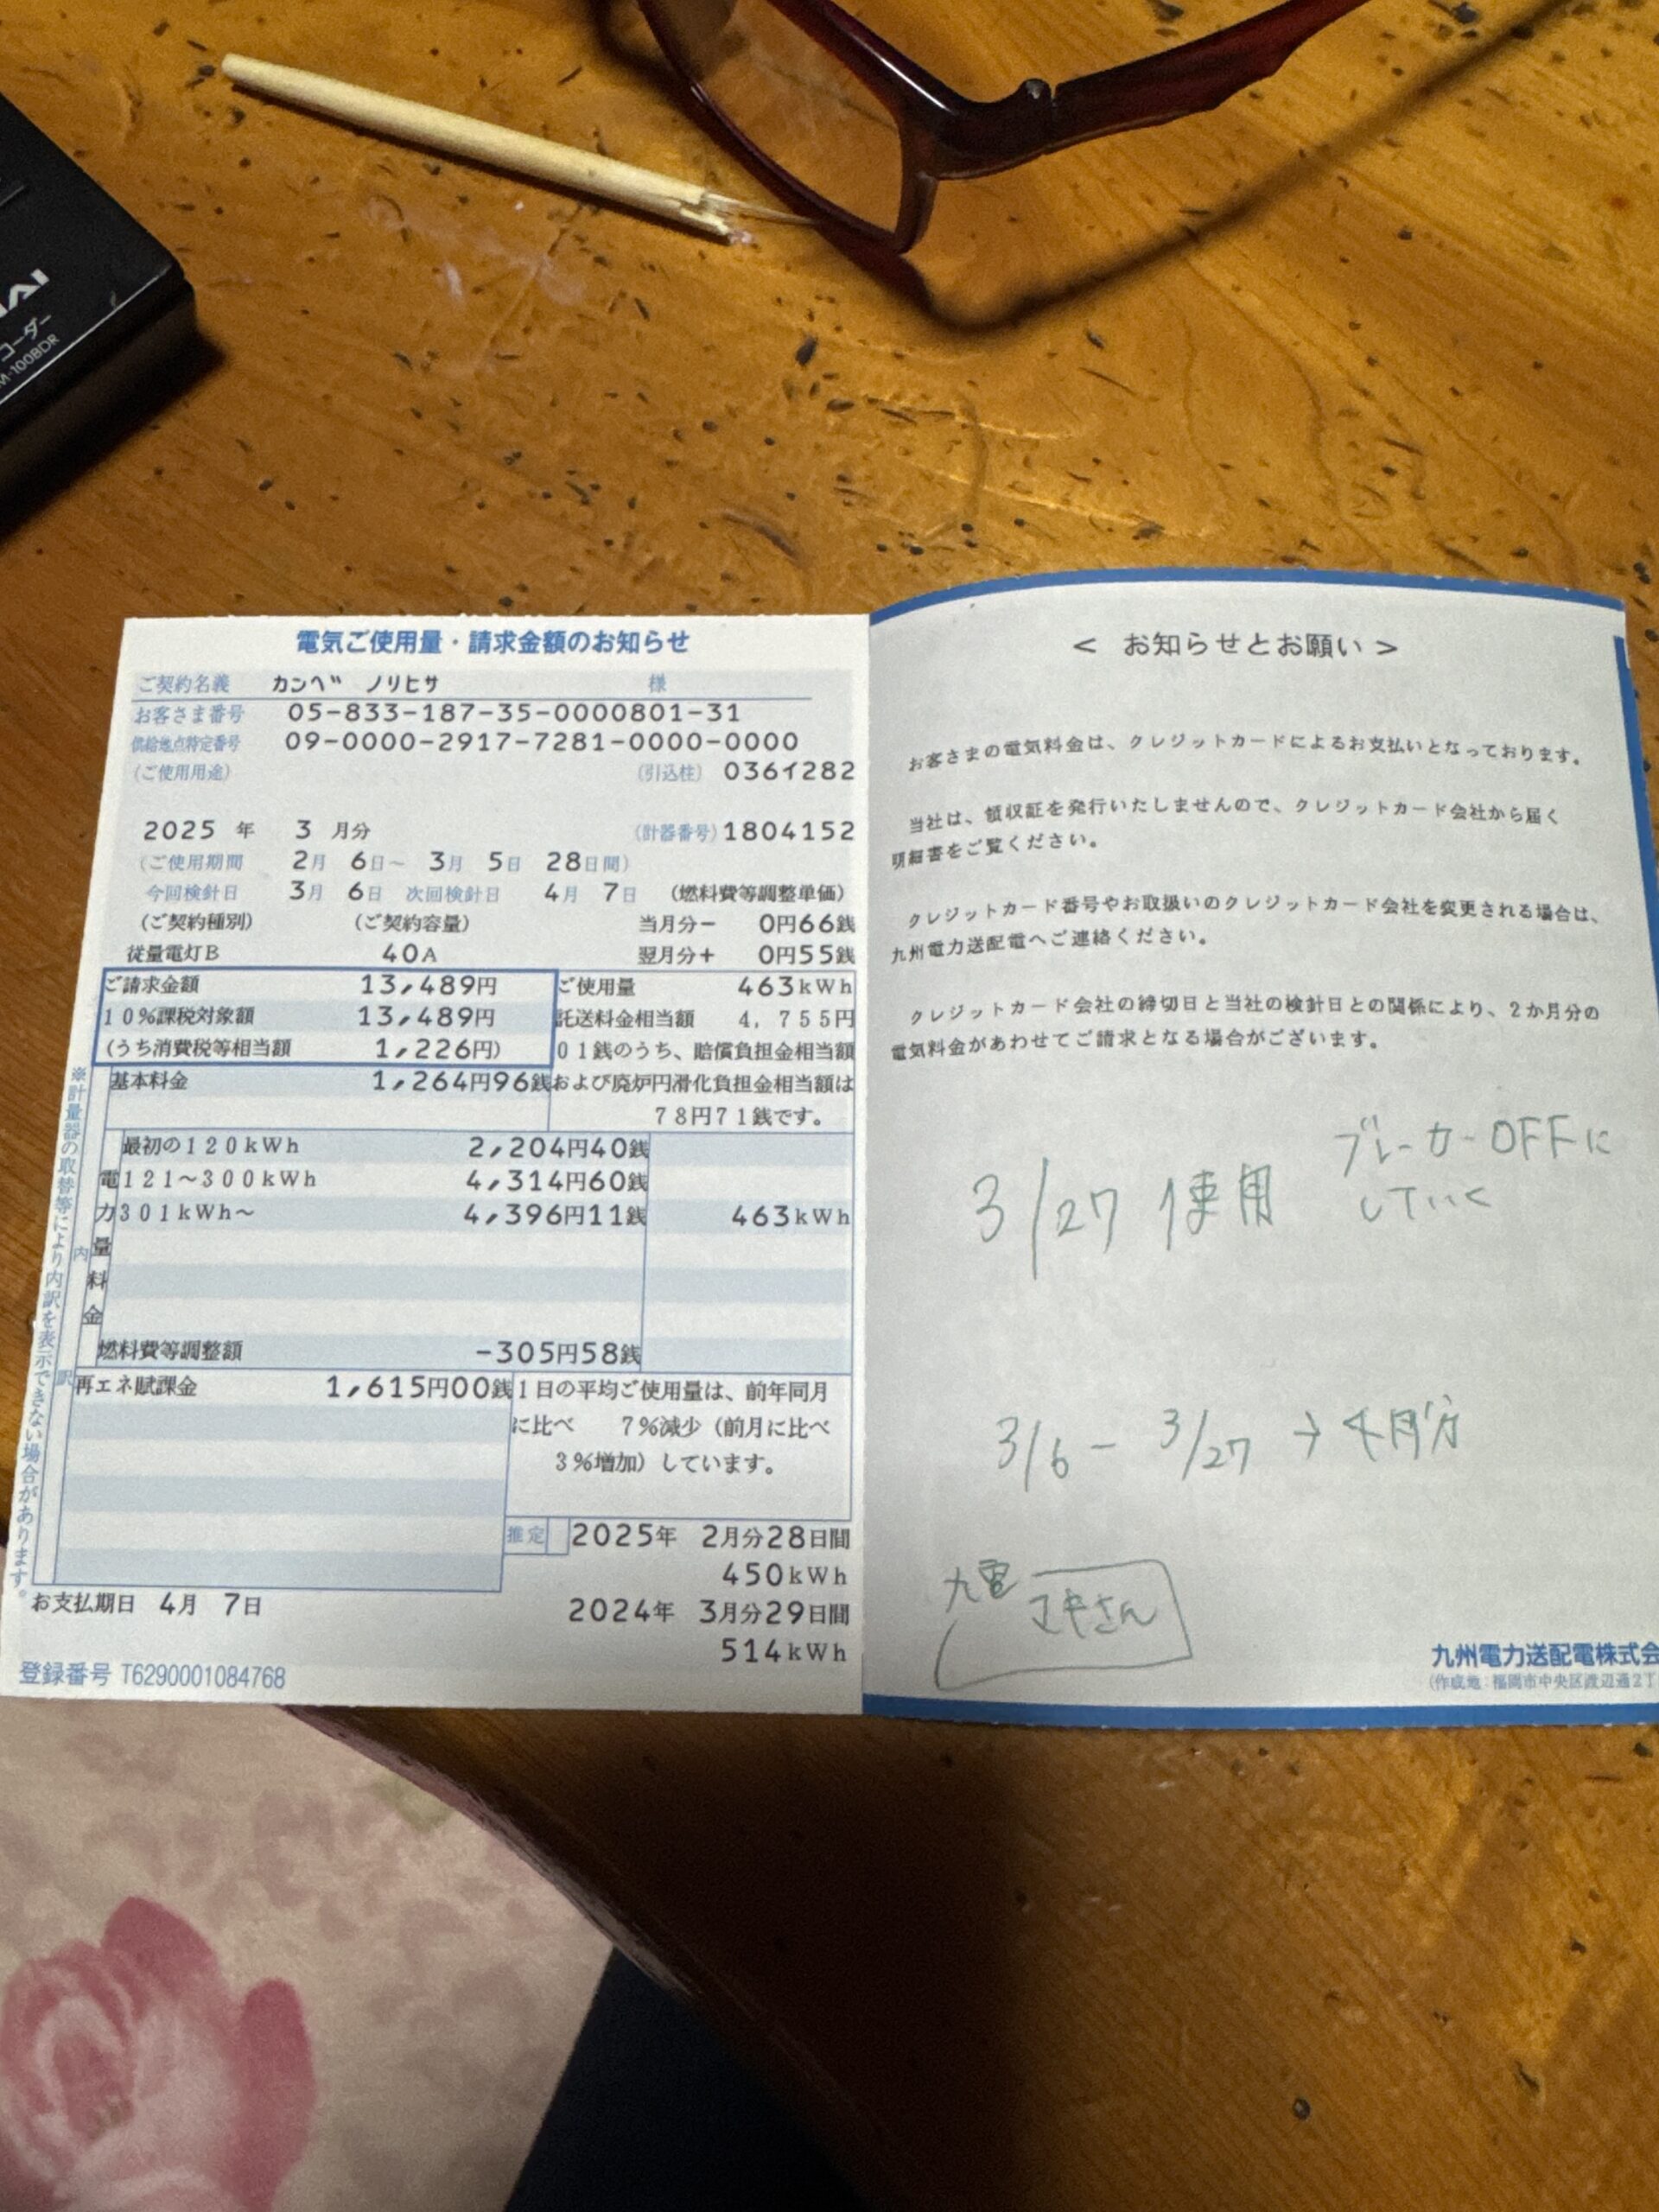 AI
コーダー
M-100BDR
電気ご使用量・請求金額のお知らせ
ご契約名義 カンベ゛ ノリヒサ 様
お客さま番号 05-833-187-35-0000801-31
供給地点特定番号 09-0000-2917-7281-0000-0000
(ご使用用途) (引込柱) 036イ282
2025 年 3 月分 (計器番号) 1804152
(ご使用期間 2月 6日~ 3月 5日 28日間)
今回検針日 3月 6日 次回検針日 4月 7日 (燃料費等調整単価)
(ご契約種別) (ご契約容量) 当月分- 0円66銭
従量電灯B 40A 翌月分+ 0円55銭
ご請求金額 13,489円 ご使用量 463kWh
10%課税対象額 13,489円 託送料金相当額 4,755円
(うち消費税等相当額 1,226円) 01銭のうち、賠償負担金相当額
基本料金 1,264円96銭 および廃炉円滑化負担金相当額は
78円71銭です。
最初の120kWh 2,204円40銭
121~300kWh 4,314円60銭
301kWh~ 4,396円11銭 463kWh
電力量料金
内訳
燃料費等調整額 -305円58銭
再エネ賦課金 1,615円00銭 1日の平均ご使用量は、前年同月
に比べ 7%減少(前月に比べ
3%増加)しています。
推定 2025年 2月分28日間
450kWh
お支払期日 4月 7日 2024年 3月分29日間
514kWh
登録番号 T6290001084768
※計量器の取替等により内訳を表示できない場合があります。
< お知らせとお願い >
お客さまの電気料金は、クレジットカードによるお支払いとなっております。
当社は、領収証を発行いたしませんので、クレジットカード会社から届く
明細書をご覧ください。
クレジットカード番号やお取扱いのクレジットカード会社を変更される場合は、
九州電力送配電へご連絡ください。
クレジットカード会社の締切日と当社の検針日との関係により、2か月分の
電気料金があわせてご請求となる場合がございます。
ブレーカーOFFに
3/27 使用 していく
3/6 - 3/27 → 4月分
九電
さん
九州電力送配電株式会
(作成地:福岡市中央区渡辺通2丁